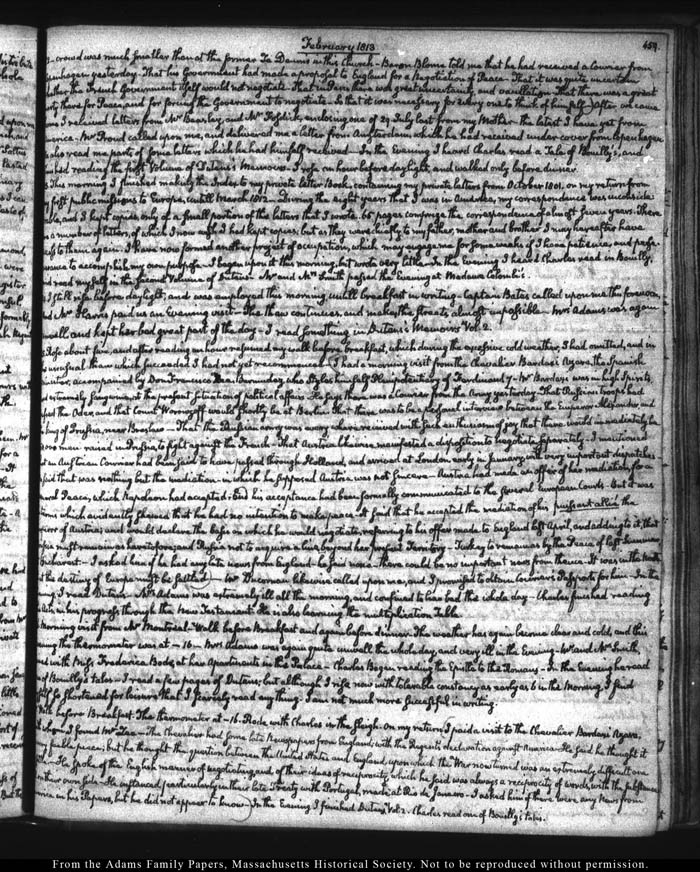 February 1813
459
crowd was much smaller than at the former Te Deums in this Church - Baron Blome told me that he had received a Courier from
yesterday - That his Government had made a proposal to England for a Negotiation of Peace - That it was quite uncertain
whether the French Government itself would not negotiate. That in Paris there was great uncertainty and vacillation. That there was a great
party there for Peace, and for forcing the Government to negotiate - & that it was necessary for every one to think of himself - After we came
I received letters from Mr and Mr enclosing one of 29 July last from my Mother - the latest I have yet from
America. Mr Proud called upon me, and delivered me a letter from Amsterdam which he had received under cover from Copenhagen
also read me parts of some letters which he had himself received - In the Evening I heard Charles read a Tale of Bouilly's, and
reading the first Volume of Dutens's Memoirs. I rose an hour before daylight, and walked only before dinner.
This morning I finished making the Index to my private letter Book, containing my private letters from October 1801. on my return from
first public missions to Europe, untill March 1812 - During the eight years that I was in America, my correspondence was
and I kept copies only of a small portion of the letters that I wrote. 65 pages comprize the correspondence of almost seven years. There
a number of letters, of which I now wish I had kept copies; but as they were chiefly to my father, mother and brother I may hereafter have
to them again. I have now formed another project of occupation, which may engage me for some weeks if I have patience, and
to accomplish my own purpose. I began upon it this morning, but wrote very little. In the Evening I heard Charles read in Bouilly,
and read myself in the second Volume of Dutens - Mr and Mrs Smith passed the Evening at Madame Colombi's.
I still rise before daylight, and was employed this morning untill breakfast in writing - Captain Bates called upon me this forenoon,
Mr Harris paid us an evening visit - The thaw continues, and makes the streets almost impassible - Mrs Adams was again
unwell, and kept her bed great part of the day - I read something in Dutens's Memoirs Vol. 2.
Rose about five, and after reading an hour resumed my walk before breakfast, which during the excessive cold weather, I had omitted, and in
unusual thaw which succeeded I had not yet recommenced. I had a morning visit from the Chevalier Bardaxi Azara, the Spanish
Minister, accompanied by Don Francisco Zea Bermudez, who styles himself Plenipotentiary of Ferdinand 7 - Mr Bardaxi was in high spirits,
extremely sanguine, at the present situation of political affairs. He says there was a Courier from the Army yesterday - That Russian troops had
the Oder, and that Count Woronzoff would shortly be at Berlin. That there was to be a personal interview between the Emperor Alexander and
King of Prussia, near Breslau - That the Russian army was every where received with such enthusiasm of joy that there would immediately be
men raised in Prussia to fight against the French - That Austria likewise manifested a disposition to negotiate separately - I mentioned
an Austrian Courier had been said to have passed through Holland, and arrived at London early in January with very important dispatches
said that was nothing but the mediation - in which he supposed Austria was not sincere - Austria had made an offer of his mediation for a
general Peace, which Napoleon had accepted - And his acceptance had been formally communicated to the several European Courts. But it was
terms which evidently shewed that he had no intention to make peace - It said that he accepted the mediation of his puissant allié the
Emperor of Austria; and would declare the basis on which he would negotiate, referring to his offer made to England last April, and adding to it, that
must remain as heretofore; and Russia not to acquire a line beyond her present Territory - Turkey to remain as by the Peace of last Summer
Bucharest - I asked him if he had any late news from England - he said none - there could be no important news from thence - It was in the North
that the destiny of Europe must be settled - Mr Ducornau likewise called upon me, and I promised to obtain Courier's Passports for him - In the
Evening I read Dutens - Mrs Adams was extremely ill all the morning, and confined to her bed the whole day - Charles finished reading
in his progress through the New Testament. He is also learning the multiplication Table.
Morning visit from Mr Montréal. Walk before Breakfast and again before dinner. The weather has again become clear and cold, and this
morning the thermometer was at - 16 - Mrs Adams was again quite unwell the whole day, and very ill in the Evening - Mr and Mrs Smith
with Miss Frederica Bode, at her Apartments in the Palace - Charles began reading the Epistle to the Romans - In the Evening he read
of Bouilly's tales - I read a few pages of Dutens; but although I rise now with tolerable constancy as early as 6 in the Morning, I find
so shortened for leisure that I scarcely read any thing. I am not much more successful in writing.
Walk before Breakfast. The thermometer at - 16. Rode with Charles in the sleigh. On my return I paid a visit to the Chevalier Bardaxi Azara,
where I found Mr Zea - The Chevalier had some late Newspapers from England; with the Regent's declaration against America - He said he thought it
feeble piece; but he thought the question between the United States and England, upon which the War now turned was an extremely difficult one
He spoke of the English manner of negotiating and of their ideas of reciprocity, which he said was always a reciprocity of words, with the substance
on their own side - He instanced particularly in their late Treaty with Portugal, made at Rio de Janeiro - I asked him if there were any News from
America in his Papers, but he did not appear to know - In the Evening I finished Dutens Vol. 2. Charles read one of Bouilly's tales.
From the Adams Family Papers, Massachusetts Historical Society. Not to be reproduced without permission.